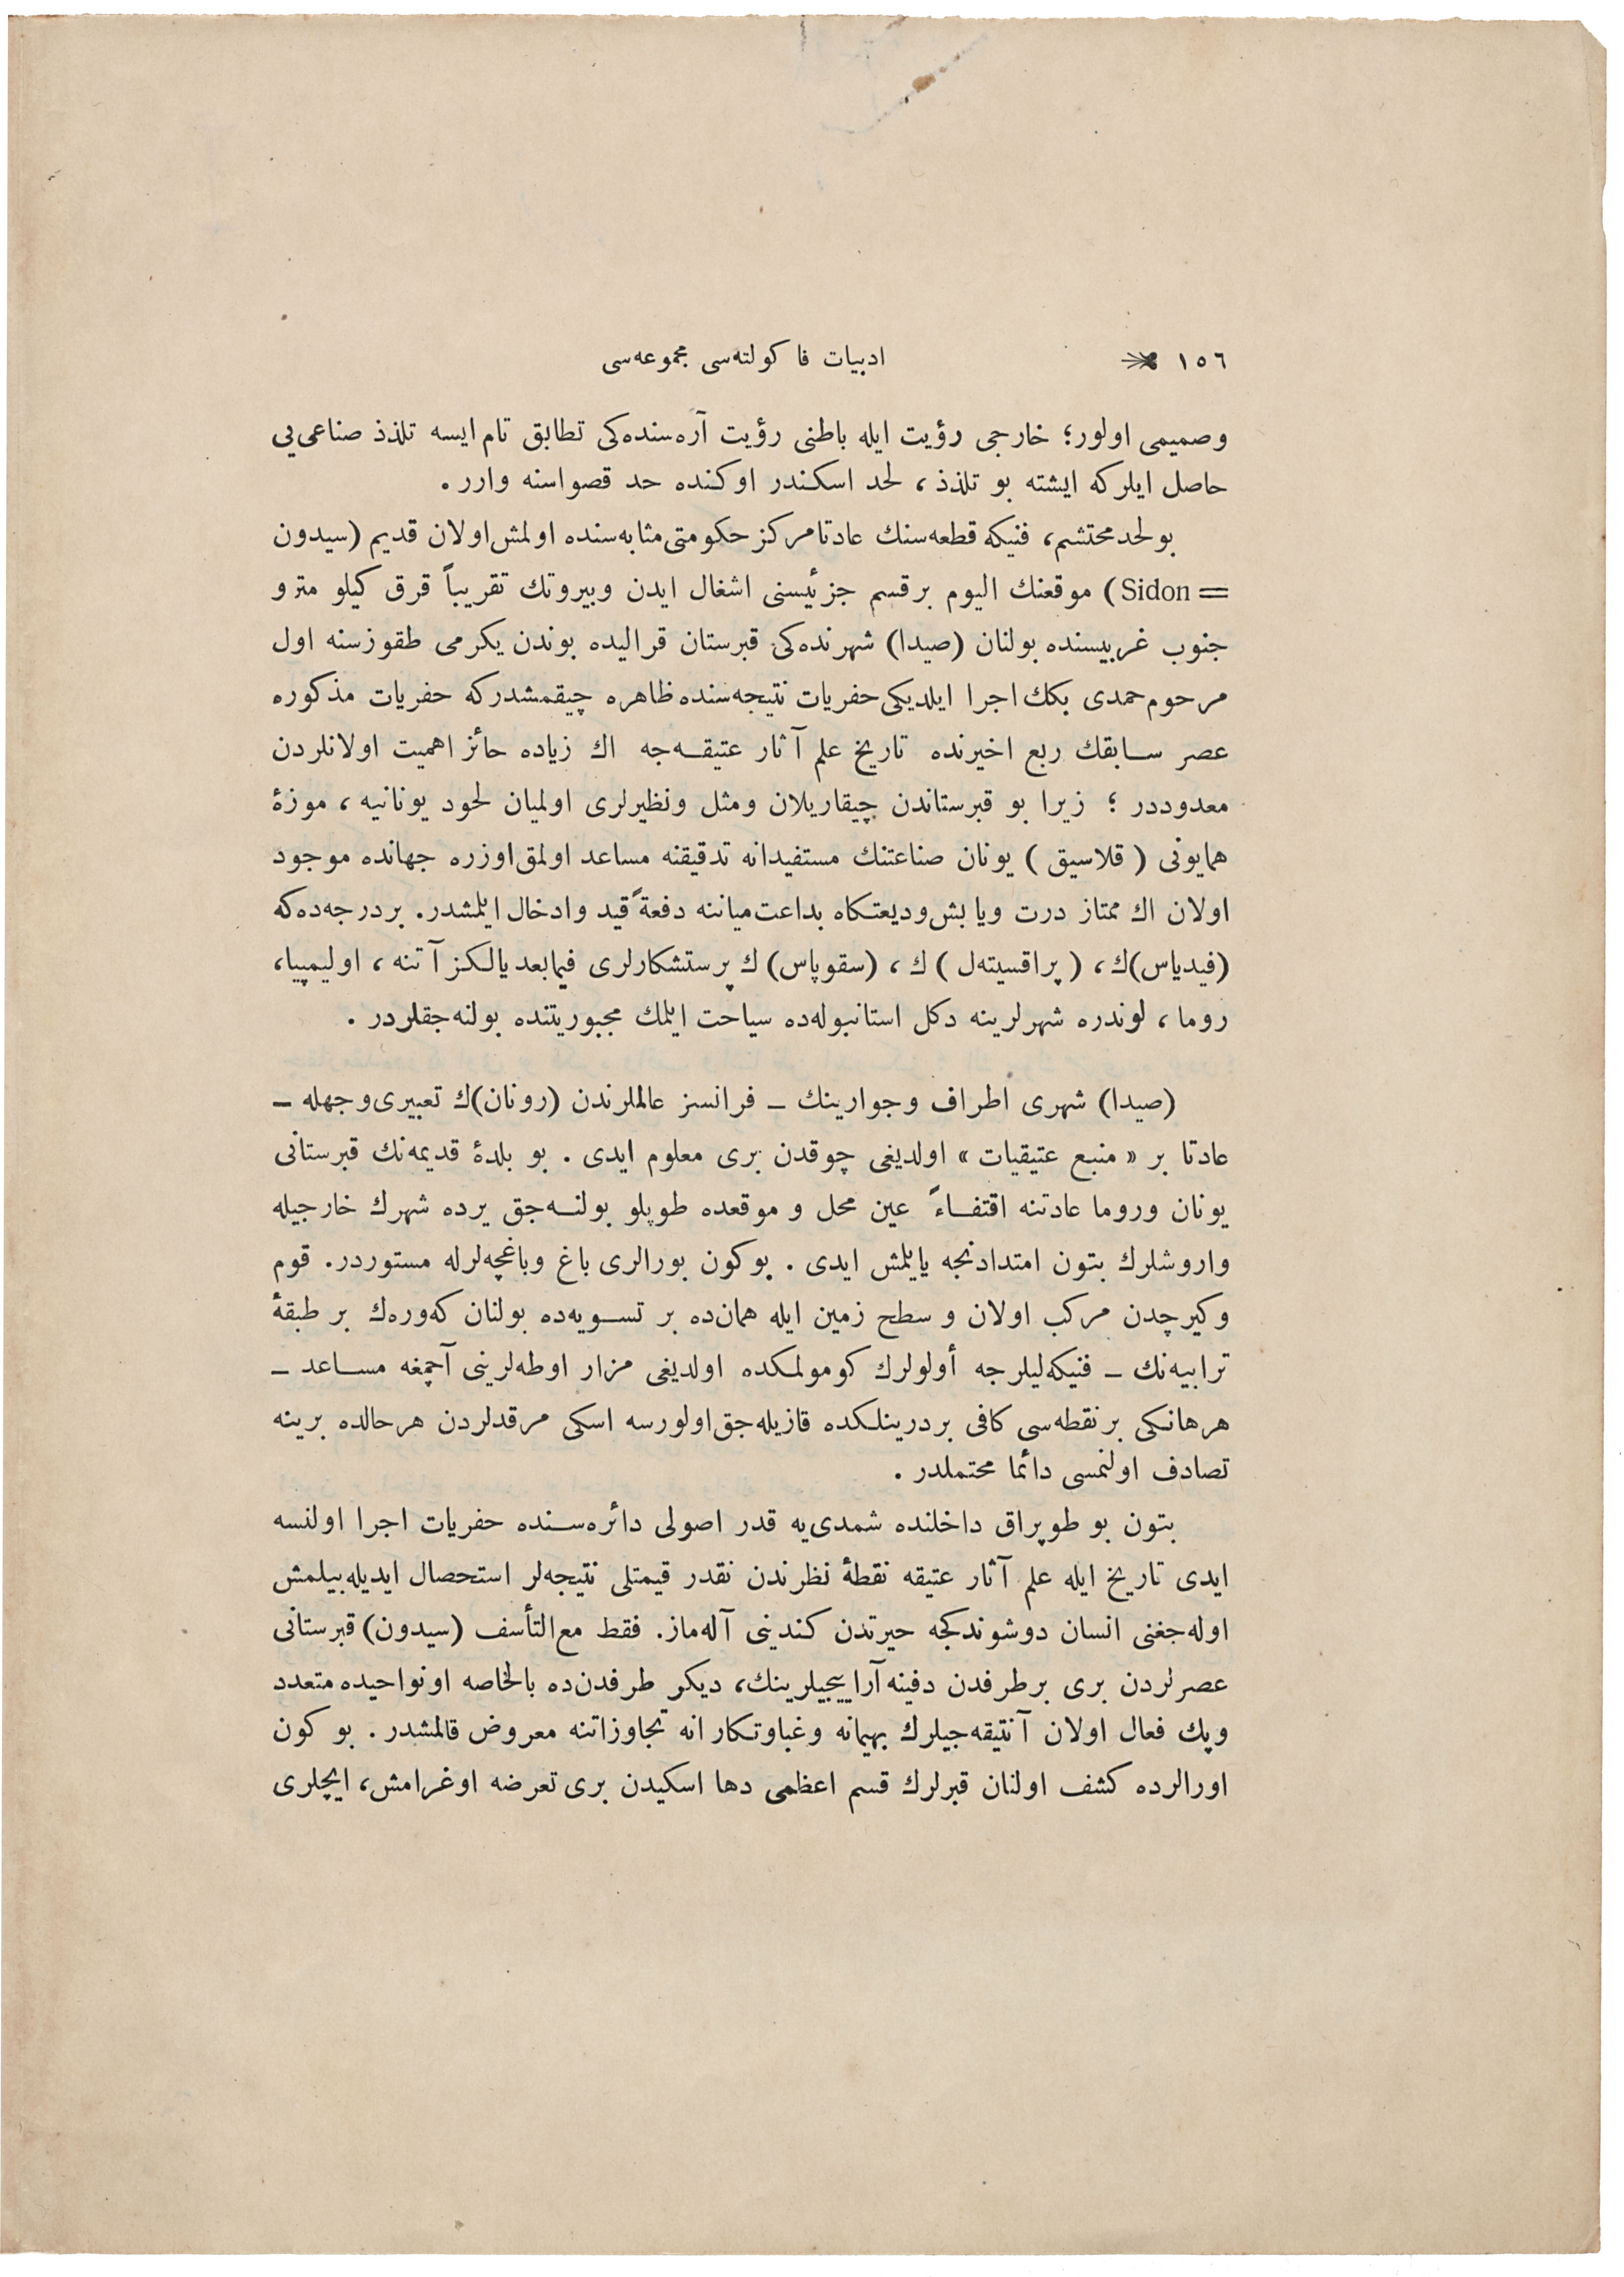 ١٥٦ ادبیات فاكولته‌سی مجموعه‌سی
وصمیمی اولور؛ خارجی رؤیت ایله باطنی رؤیت آره‌سنده‌كی تطابق تام ایسه تلذذ صناعی‌یی
حاصل ایلر كه ایشته بو تلذذ، لحد اسكندر اوكنده حد قصواسنه وارر.
بو لحد محتشم، فنیكه قطعه‌سنك عادتا مركز حكومتی مثابه‌سنده اولمش اولان قدیم (سیدون
= Sidon) موقعنك الیوم بر قسم جزئیسنی اشغال ایدن وبیروتك تقریباً قرق كیلو مترو
جنوب غربیسنده بولنان (صیدا) شهرنده‌كی قبرستان قرالیده بوندن یكرمی طقوز سنه اول
مرحوم حمدی بكك اجرا ایلدیكی حفریات نتیجه‌سنده ظاهره چیقمشدر كه حفریات مذكوره
عصر سابقك ربع اخیرنده تاریخ علم آثار عتیقه‌جه اك زیاده حائز اهمیت اولانلردن
معدوددر؛ زیرا بو قبرستاندن چیقاریلان ومثل ونظیرلری اولمیان لحود یونانیه، موزهٔ
همایونی (قلاسیق) یونان صناعتنك مستفیدانه تدقیقنه مساعد اولمق اوزره جهانده موجود
اولان اك ممتاز درت ویا بش ودیعتكاه بداعت میاننه دفعةً قید وادخال ایلمشدر. بر درجه‌ده كه
(فیدیاس)ك، (پراقسیته‌ل)ك، (سقوپاس)ك پرستشكارلری فیمابعد یالكز آتنه، اولیمپیا،
روما، لوندره شهرلرینه دكل استانبوله‌ده سیاحت ایلمك مجبوریتنده بولنه‌جقلردر.
(صیدا) شهری اطراف وجوارینك ـ فرانسز عالملرندن (رونان)ك تعبیری وجهله ـ
عادتا بر «منبع عتیقیات» اولدیغی چوقدن بری معلوم ایدی. بو بلدهٔ قدیمه‌نك قبرستانی
یونان وروما عادتنه اقتفاءً عین محل و موقعده طوپلو بولنه‌جق یرده شهرك خارجیله
واروشلرك بتون امتدادنجه یایلمش ایدی. بوكون بورالری باغ وباغچه‌لرله مستوردر. قوم
وكیرچدن مركب اولان و سطح زمین ایله همان‌ده بر تسویه‌ده بولنان كه‌وره‌ك بر طبقهٔ
ترابیه‌نك ـ فنیكه‌لیلرجه أولولرك كومولمكده اولدیغی مزار اوطه‌لرینی آچمغه مساعد ـ
هرهانكی بر نقطه‌سی كافی بر درینلكده قازیله‌جق اولورسه اسكی مرقدلردن هر حالده برینه
تصادف اولنمسی دائما محتملدر.
بتون بو طوپراق داخلنده شمدی‌یه قدر اصولی دائره‌سنده حفریات اجرا اولنسه
ایدی تاریخ ایله علم آثار عتیقه نقطهٔ نظرندن نقدر قیمتلی نتیجه‌لر استحصال ایدیله‌بیلمش
اوله‌جغنی انسان دوشوندكجه حیرتدن كندینی آله‌ماز. فقط مع‌التأسف (سیدون) قبرستانی
عصرلردن بری بر طرفدن دفینه آراییجیلرینك، دیكر طرفدن‌ده بالخاصه او نواحیده متعدد
وپك فعال اولان آنتیقه‌جیلرك بهیمانه وغباوتكارانه تجاوزاتنه معروض قالمشدر. بو كون
اورالرده كشف اولنان قبرلرك قسم اعظمی دها اسكیدن بری تعرضه اوغرامش، ایچلری